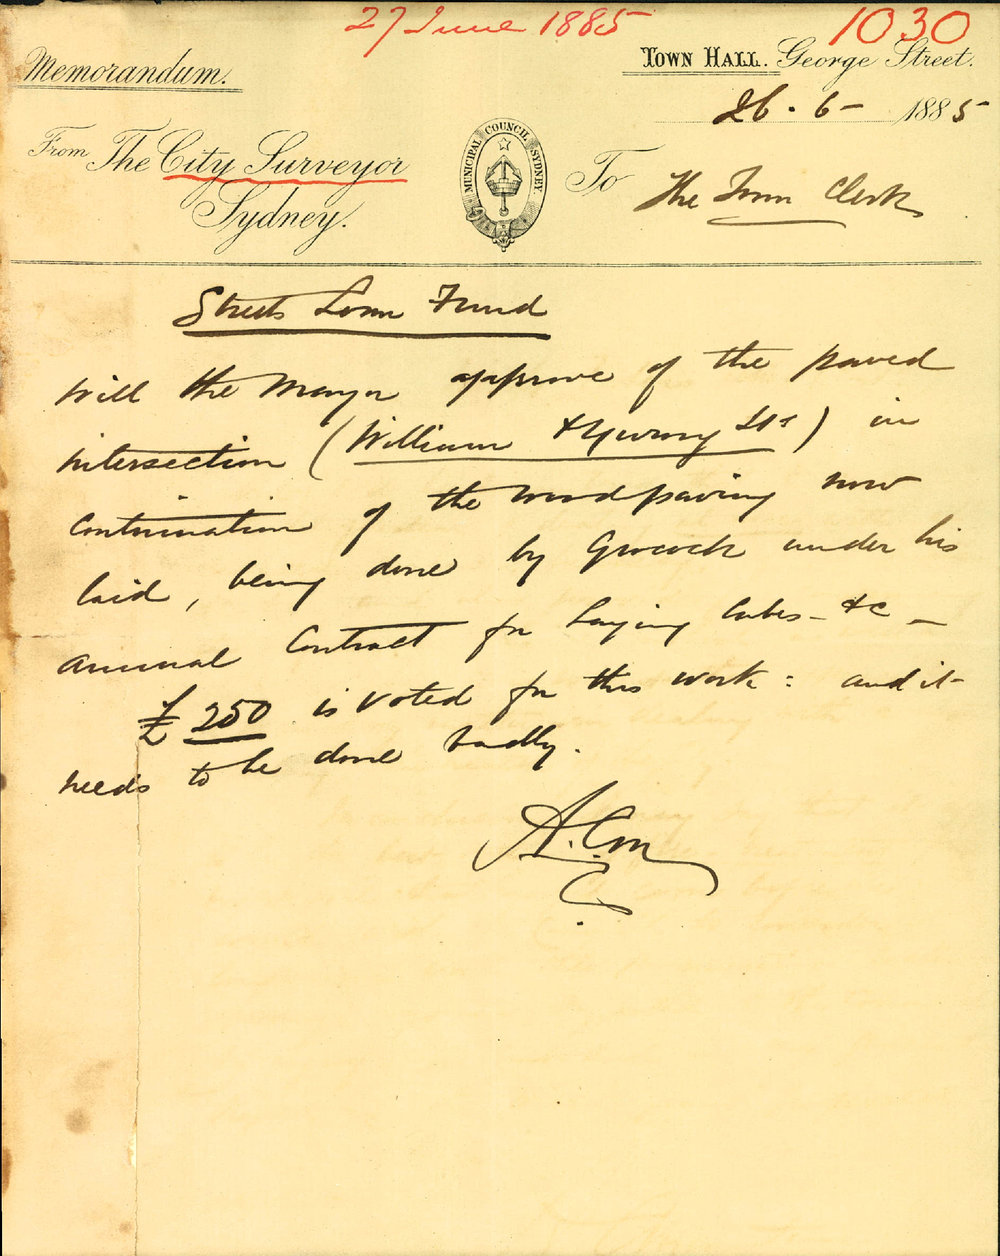 27 June 1885
1030
Memorandum.
TOWN HALL. George Street.
26 · 6 – 1885
From The City Surveyor
Sydney.
MUNICIPAL COUNCIL SYDNEY.
To The Town Clerk
Streets Loan Fund
Will the Mayor approve of the paved
intersection (William & Yurong Sts) in
continuation of the woodpaving now
laid, being done by Grocock under his
annual Contract for laying Cubes – &c –
£250 is voted for this work : and it
needs to be done badly.
A.C.